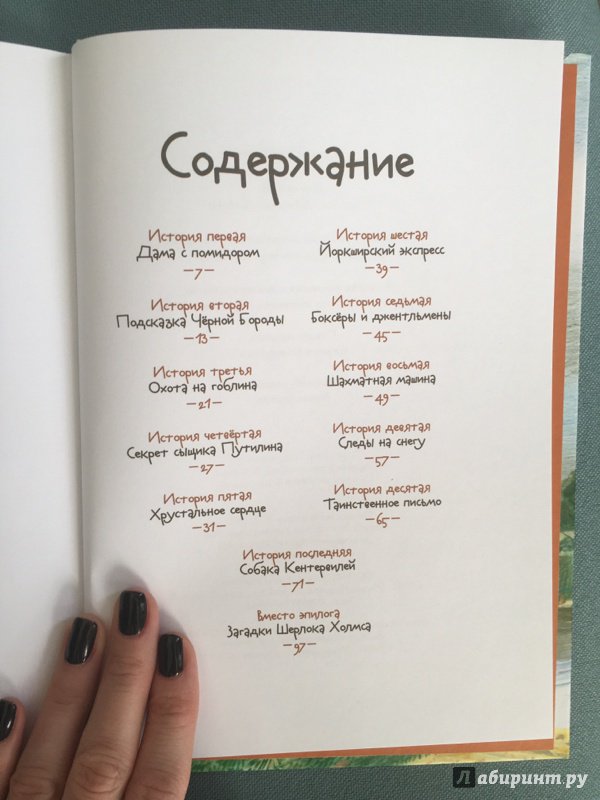 Содержание
История первая
Дама с помидором
—7—
История вторая
Подсказка Чёрной Бороды
—13—
История третья
Охота на гоблина
—21—
История четвёртая
Секрет сыщика Путилина
—27—
История пятая
Хрустальное сердце
—31—
История шестая
Йоркширский экспресс
—39—
История седьмая
Боксёры и джентльмены
—45—
История восьмая
Шахматная машина
—49—
История девятая
Следы на снегу
—57—
История десятая
Таинственное письмо
—65—
История последняя
Собака Кентервилей
—71—
Вместо эпилога
Загадки Шерлока Холмса
—97—
Лабиринт.ру